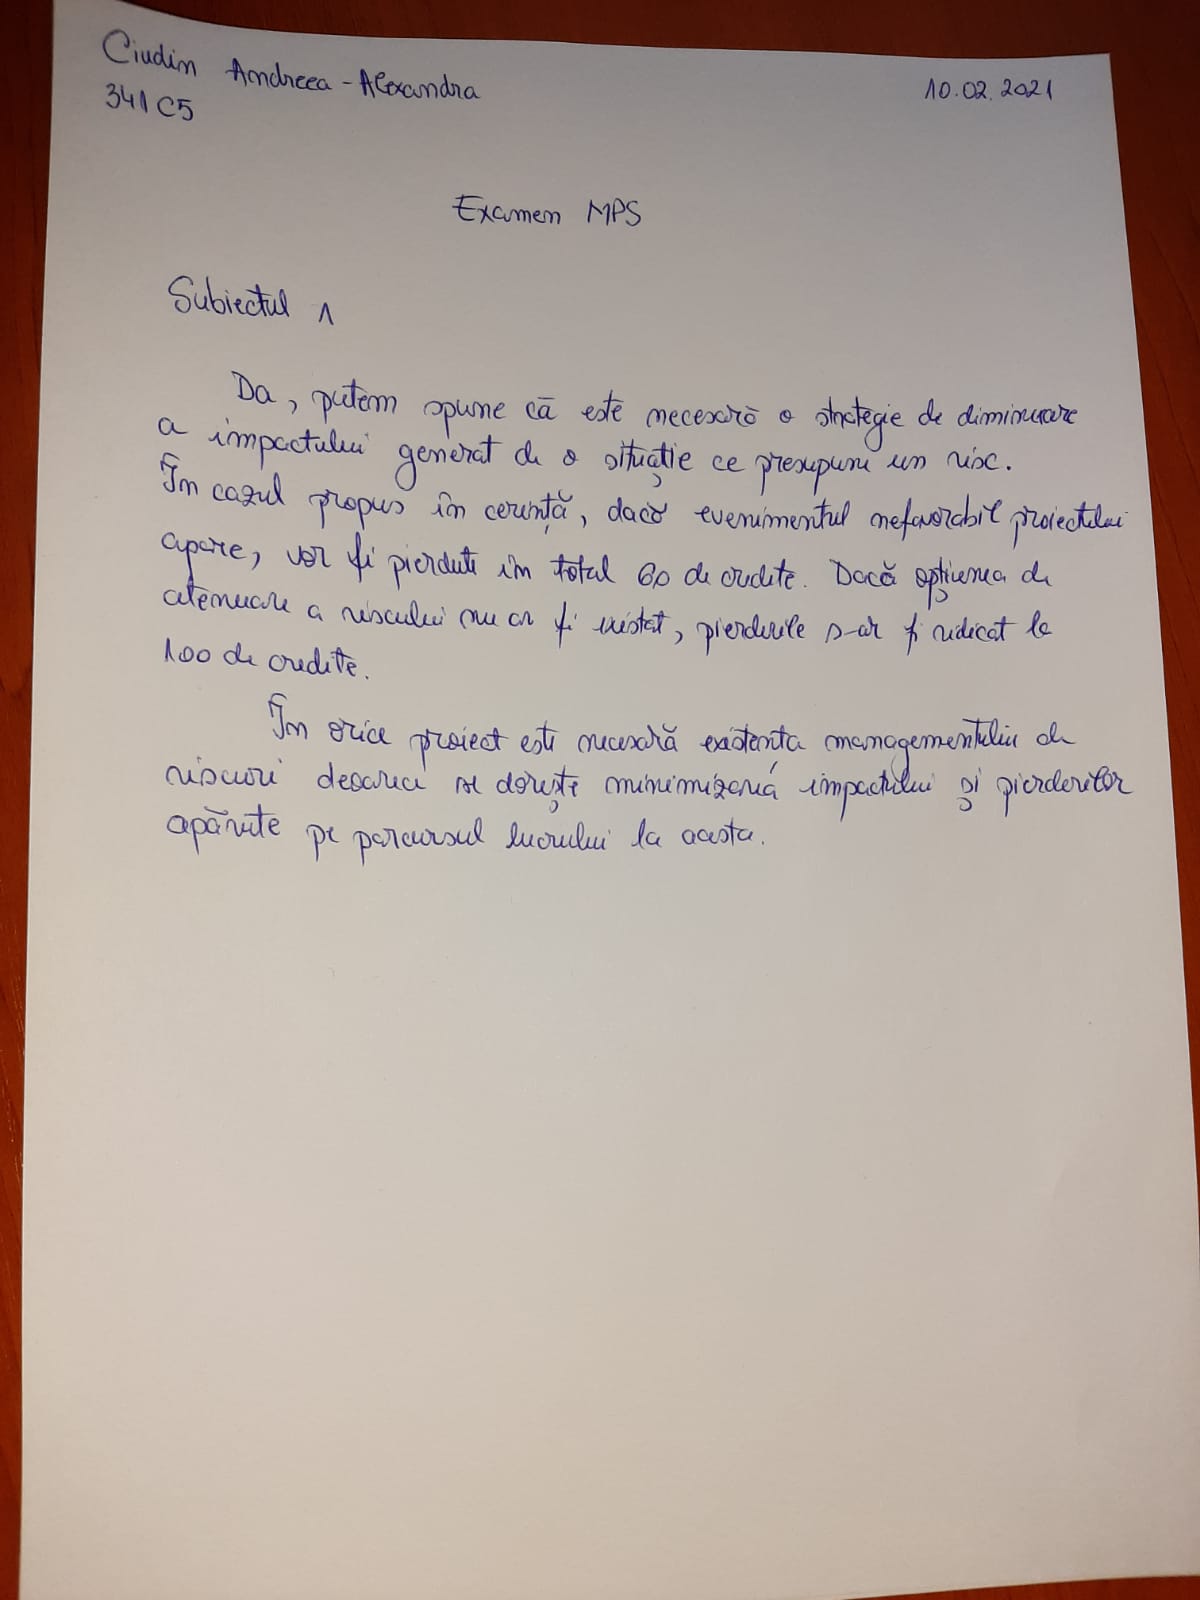 Ciudin Andreea-Alexandra
10.02.2021
341C5
Examen MPS
Subiectul 1
Da, putem spune că este necesară o strategie de diminuare
a impactului generat de o situație ce presupune un risc.
În cazul propus în cerință, dacă evenimentul nefavorabil proiectului
apare, vor fi pierdute în total 60 de credite. Dacă opțiunea de
atenuare a riscului nu ar fi existat, pierderile s-ar fi ridicat la
100 de credite.
În orice proiect este necesară existența managementului de
riscuri deoarece se dorește minimizarea impactului și pierderilor
apărute pe parcursul lucrului la acesta.